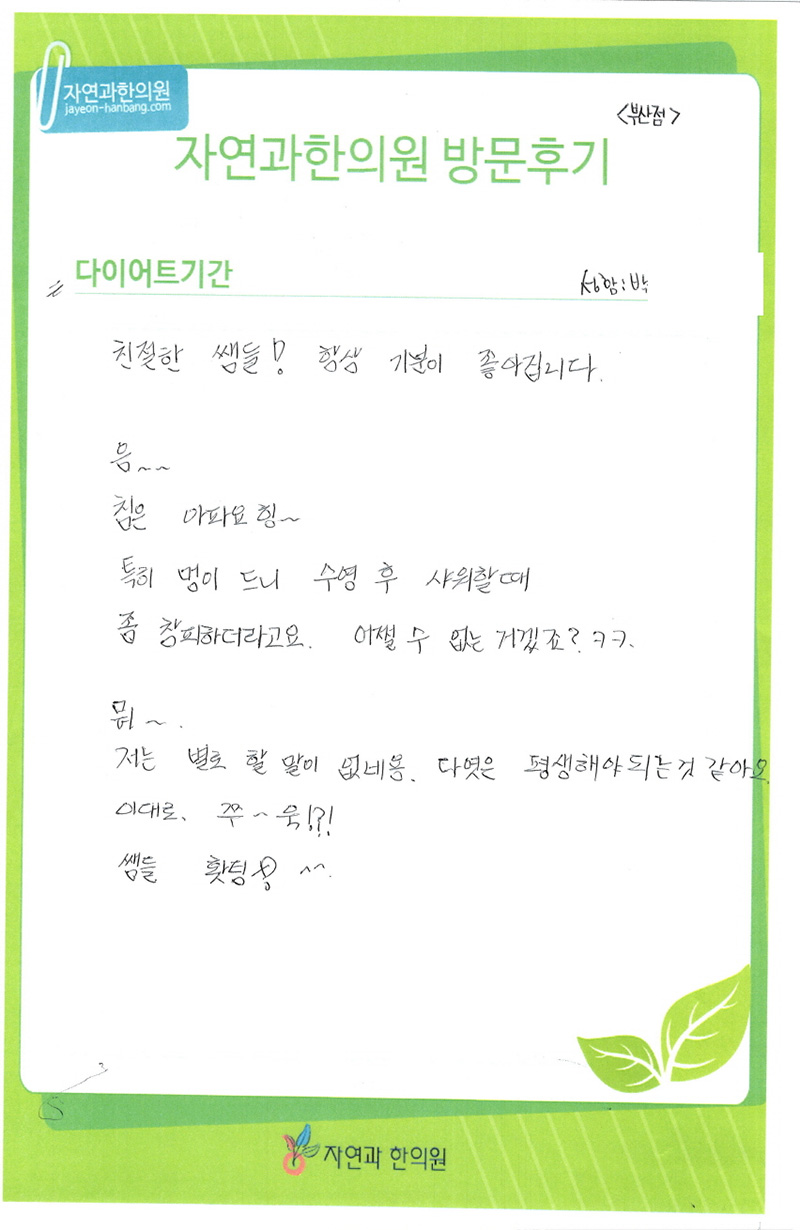 자연과한의원
jayeon-hanbang.com
<부산점>
자연과한의원 방문후기
다이어트기간
성함:박
친절한 쌤들! 항상 기분이 좋아집니다.
음~~
침은 아파요힝~
특히 멍이 드니 수영 후 샤워할때
좀 창피하더라고요. 어쩔 수 없는 거겠죠? ㅋㅋ.
뭐~.
저는 별로 할 말이 없네용. 다엿은 평생해야되는것 같아요.
이대로. 쭈~욱!?!
쌤들 홧팅! ^^.
자연과 한의원